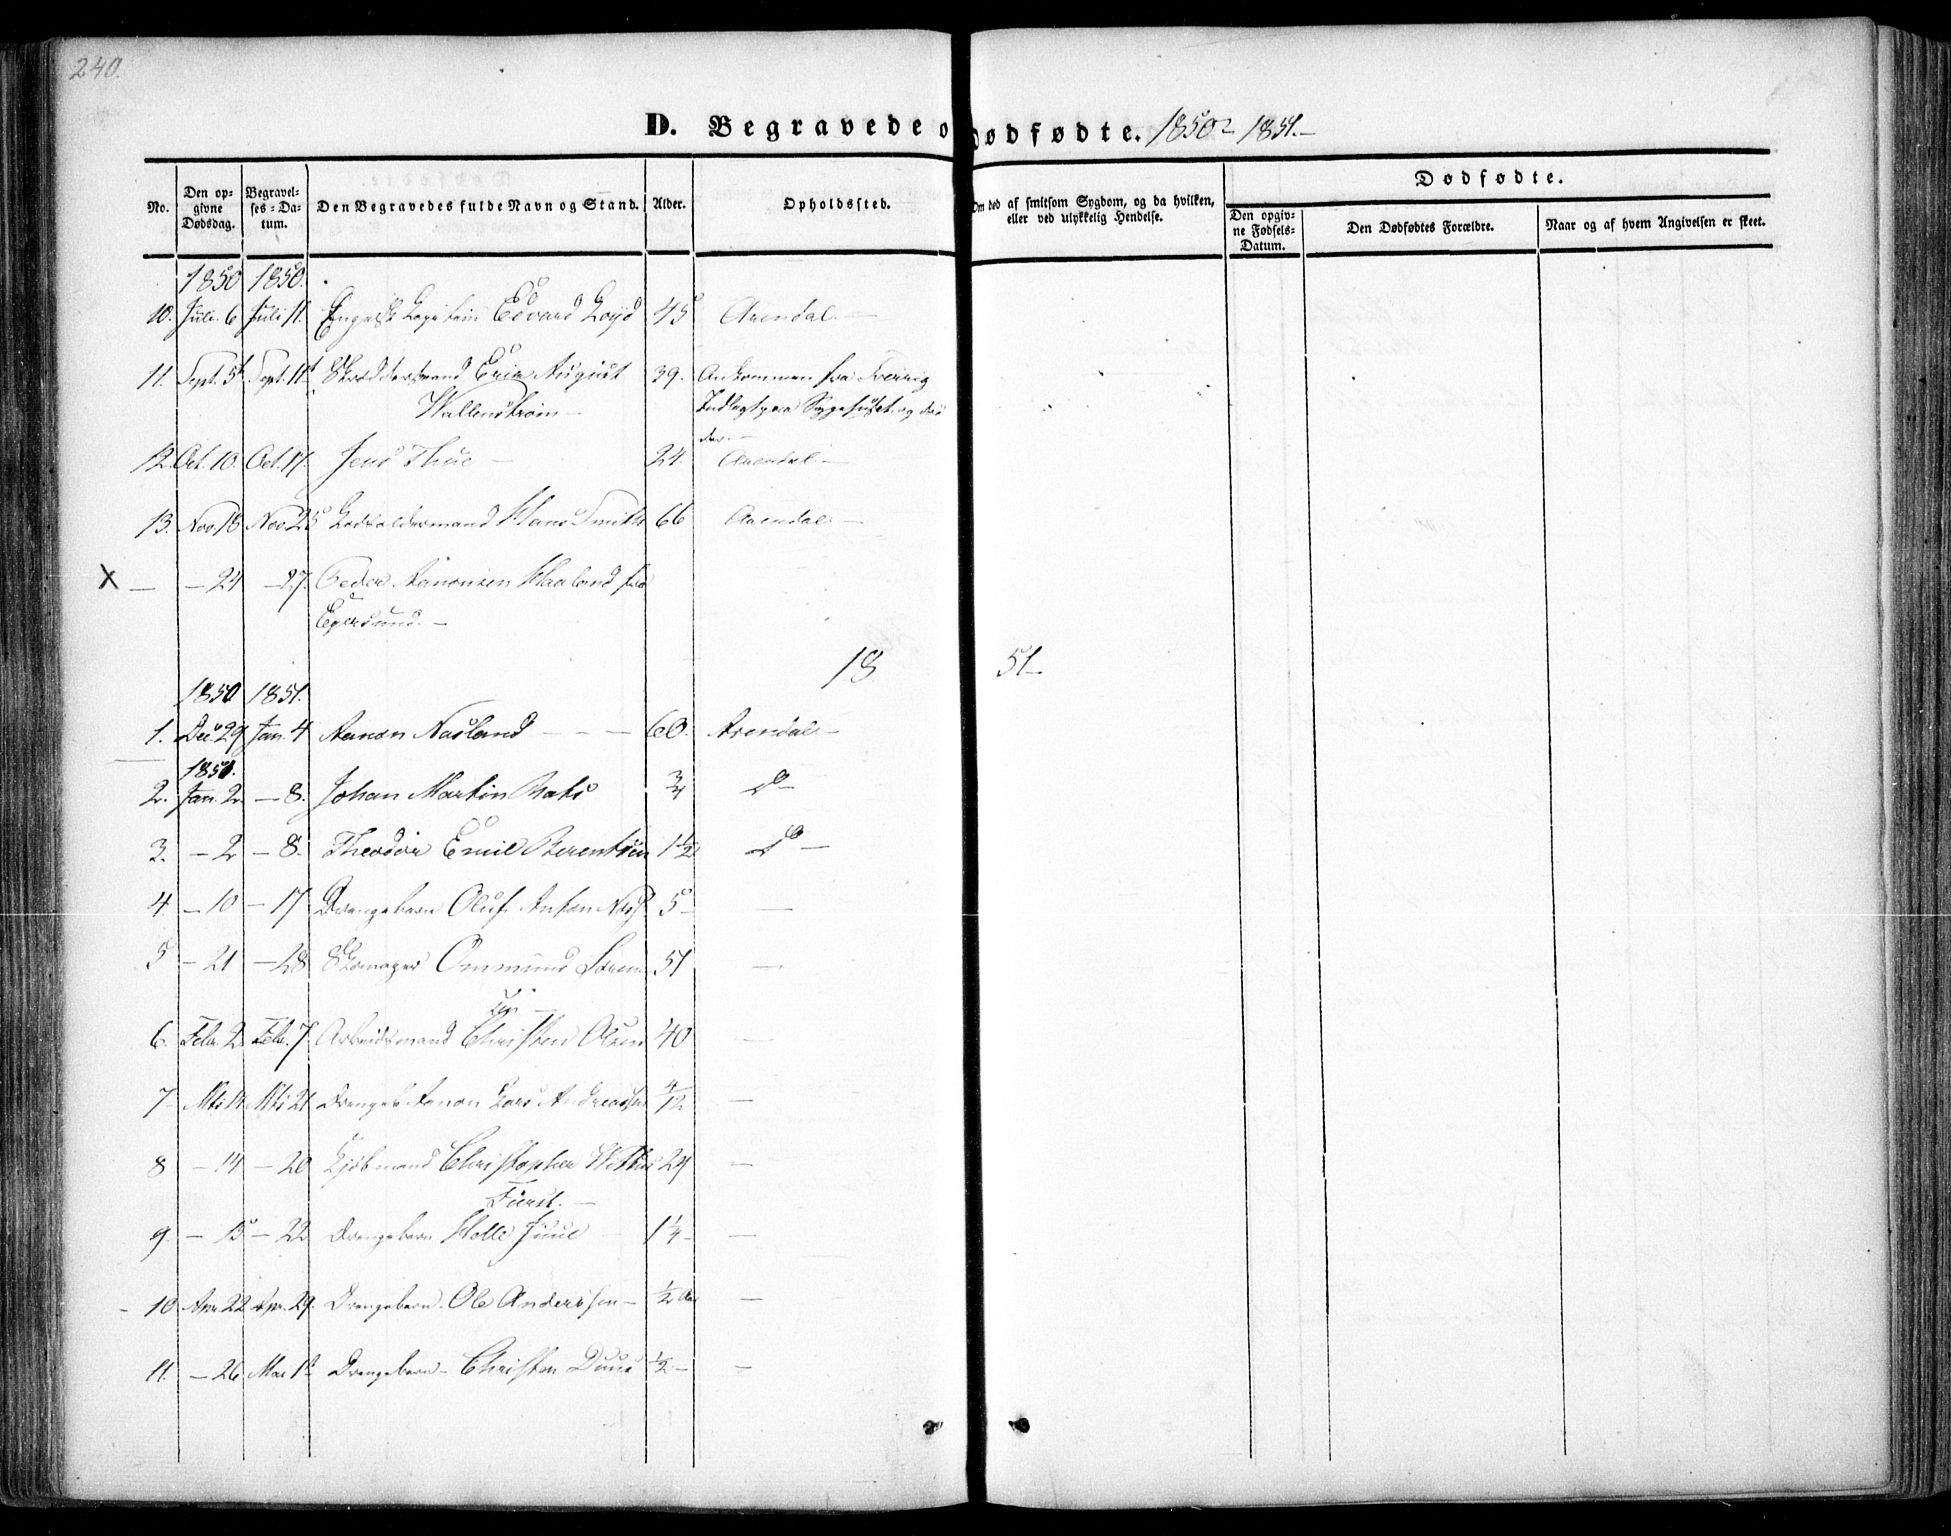 240.
D. Begravede o dødfødte. 1850 1851.
Dødfødte.
No.
Den opgivne Dødsdag.
Begravelses-Datum.
Den Begravedes fulde Navn og Stand.
Alder.
Opholdssted.
Om død af smitsom Sygdom, og da hvilken, eller ved ulykkelig Hendelse.
Den opgivne Fødsels-Datum.
Den Dødfødtes Forældre.
Naar og af hvem Angivelsen er skeet.
1850 1850.
10. Juli 6 Juli 11. Engelsk Edvard Loyd 45 Arendal.
11. Sept. 5t Sept. 11t Skræddersvend August 39. Ankommen fra Sverrig
Wallenstrøm Indlagt paa Sygehuset og
12. Oct. 10. Oct. 17. Jens Thue 24. Arendal.
13. Nov. 18 Nov. 25 Hans Smith 66 Arendal
X — — 24 — 27. Peder Aanonsen Haaland fra
Egersund. —
18 51
1850 1851.
1. Dec. 29 Jan. 4 Aanon Nasland — — — 60. Arendal
1851.
2. Jan. 2. — 8. Johan Martin 3/4 Do —
3. — 2 — 8. Theodor Emil Berentsen 1 1/2 Do —
4. — 10 — 17 Drengebarn Oluf Anton 5 — —
5 — 21 — 28 Skomager Ommund Soren 51 —
sen
6. Febr. 2. Febr. 7 Arbeidsmand Christen Olsen 40 —
7 — Mts 14 Mts 21 Drengeb. Aanon Lars Andreassen 4/12 —
8 — 14 — 20 Kjøbmand Christopher 29 —
Fürst. —
9. — 15 — 22 Drengebarn Helle Juul 1 1/4 — —
10 Apr. 22 Apr. 29. Drengebarn Ole Anderssen — 1/2 Aar —
11. — 26 Mai 1t Drengebarn — Christen Duus 1/2 — —